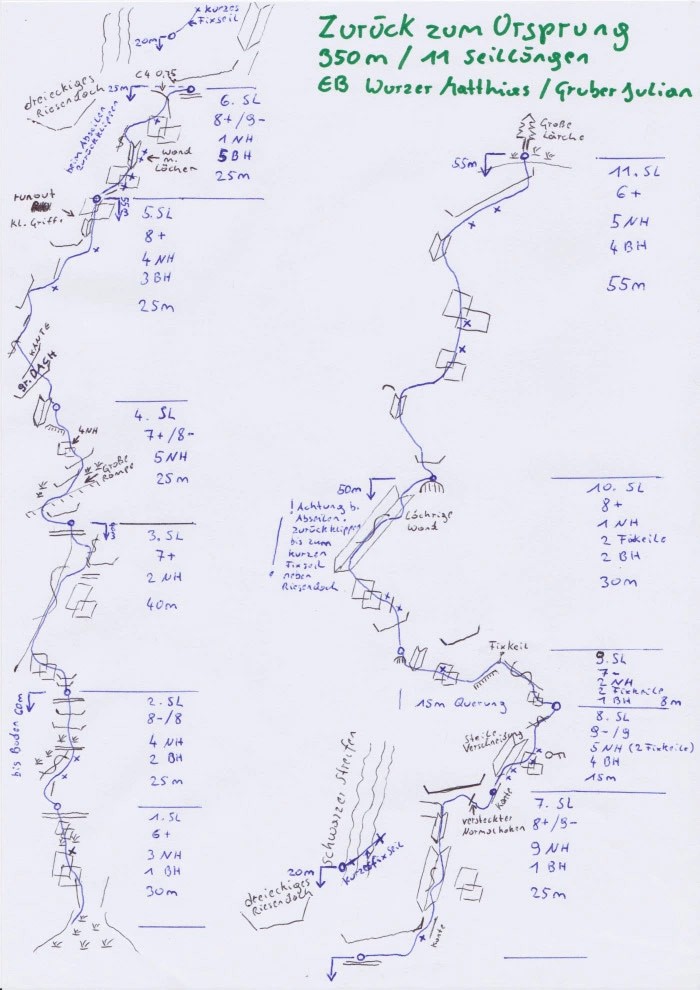 Zurück zum Orsprung
350m / 11 Seillängen
EB Wurzer Matthias / Gruber Julian
kurzes
Fixseil
20m
dreieckiges
Riesendach
C4 0,75
25m
beim Abseilen
zurückklippen
6. SL
8+/9-
1 NH
5 BH
25m
Wand
m.
Löchern
runout
kl. Griffe
5. SL
8+
4 NH
3 BH
25m
KANTE
gr. DACH
4. SL
7+/8-
5 NH
25m
4NH
Große
Rampe
3. SL
7+
2 NH
40m
bis Boden 60m
2. SL
8-/8
4 NH
2 BH
25m
1. SL
6+
3 NH
1 BH
30m
Große
Lärche
55m
11. SL
6+
5 NH
4 BH
55m
50m
! Achtung b.
Abseilen.
zurückklippen
bis zum
kurzen
Fixseil
neben
Riesendach
Löchrige
Wand
10. SL
8+
1 NH
2 Fixkeile
2 BH
30m
Fixkeil
15m Querung
9. SL
7-
2 NH
2 Fixkeile
1 BH 8m
8. SL
9-/9
5 NH (2 Fixkeile)
4 BH
15m
Steile
Verschneidung
Kante
versteckter
Normalhaken
7. SL
8+/9-
9 NH
1 BH
25m
Schwarzer Streifen
20m
kurzes Fixseil
dreieckiges
Riesendach
Kante